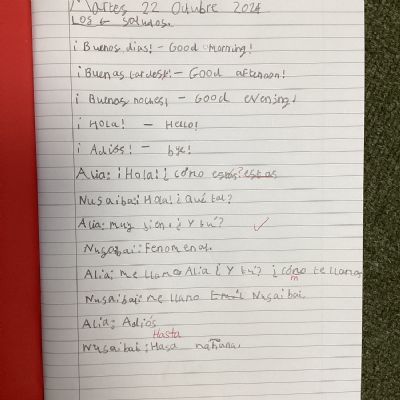 Martes 22 Octubre 2024
Los ← saludos.
¡Buenos días! - Good morning!
¡Buenas tardes! - Good afternoon!
¡Buenos noches¡ - Good evening!
¡HOLA! - Hello!
¡Adiós! - bye!
Alia: ¡Hola! ¿cómo estás? estas
Nusaiba: Hola! ¿qué tal?
Alia: muy bien, ¿Y tú?
Nusaiba: Fenomenal.
Alia: me llamo Alia ¿Y tú? ¿cómo te llamas
m
Nusaiba: me llamo Nusaiba.
Alia: Adiós
Hasta
Nusaiba: Hasa mañana.